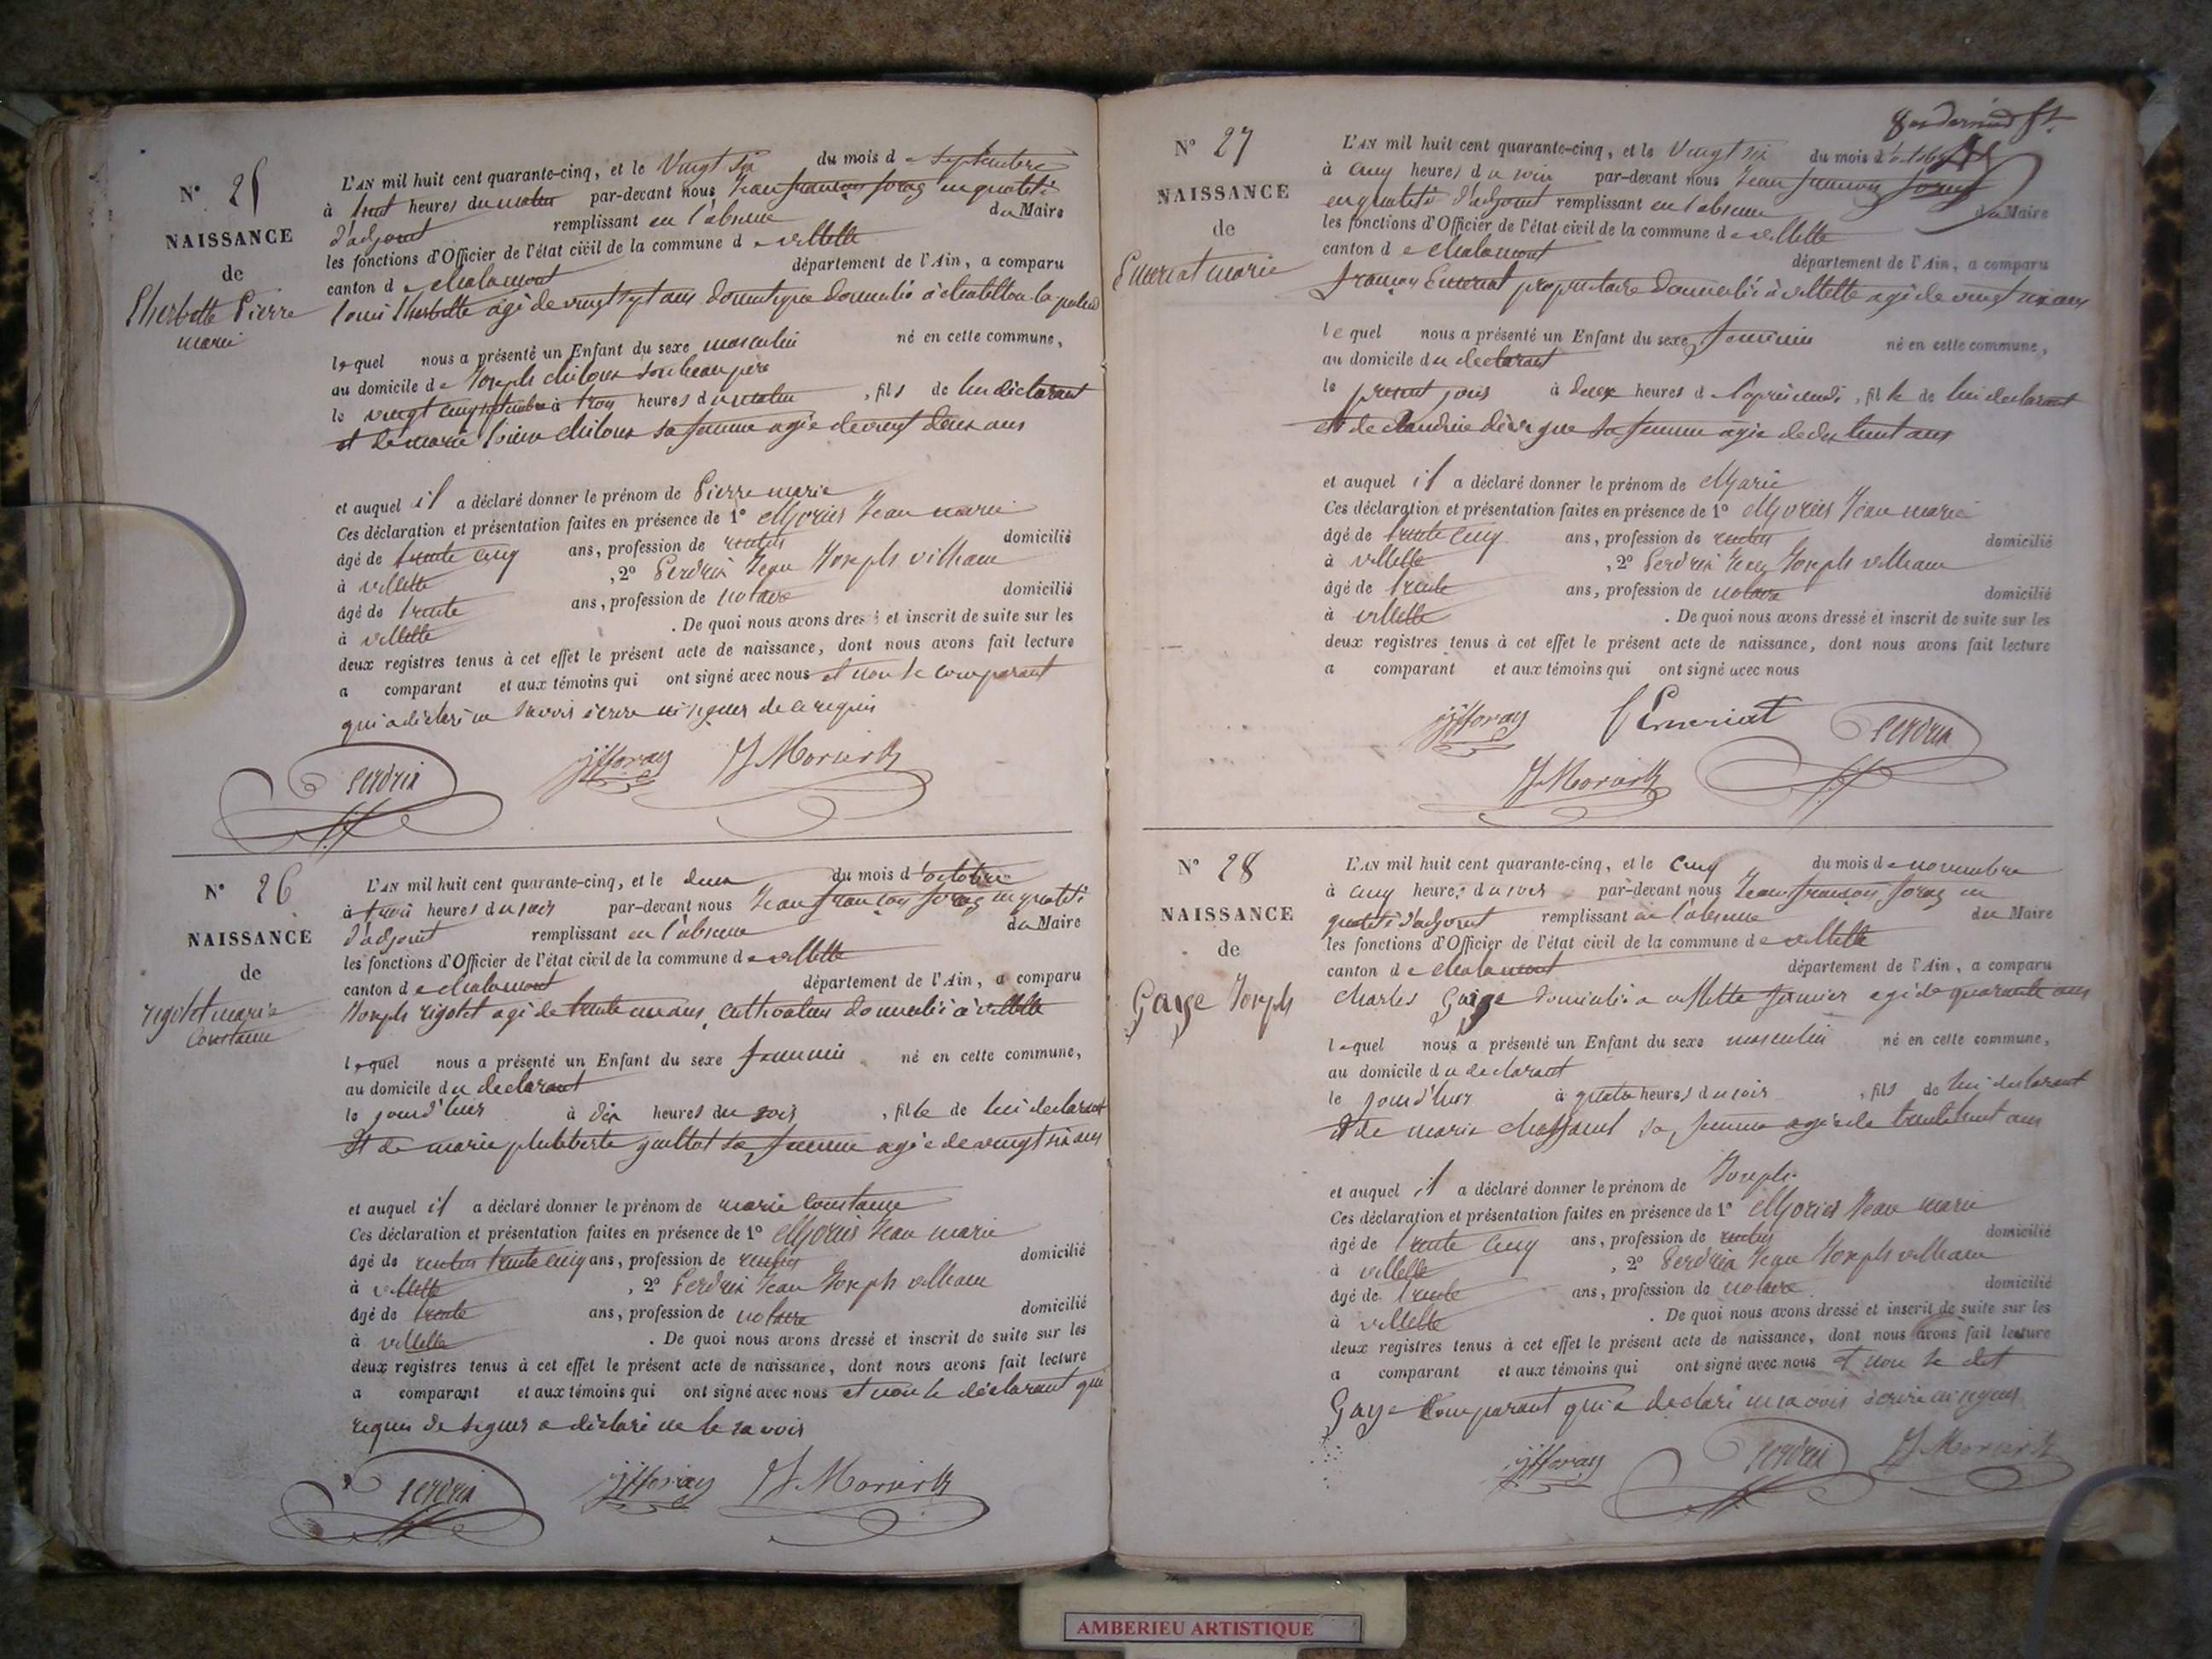 N° 25
NAISSANCE
de
Lherbette Pierre
marie
L'AN mil huit cent quarante-cinq, et le vingt six du mois de septembre
à huit heures du matin par-devant nous Jean françois foray en qualité
d'adjoint remplissant en l'absence du Maire
les fonctions d'Officier de l'état civil de la commune de villette
canton de chalamont département de l'Ain, a comparu
louis Lherbette agé de vingt sept ans domestique domicilié à chatillon la palud
lequel nous a présenté un Enfant du sexe masculin né en cette commune,
au domicile de Joseph son beau père
le vingt cinq septembre à trois heures du matin, fils de lui déclarant
et de marie sa femme agée de vingt deux ans
et auquel il a déclaré donner le prénom de Pierre marie
Ces déclaration et présentation faites en présence de 1° Jean marie
âgé de trente cinq ans, profession de rentier domicilié
à villette, 2° Perdrix Jean Joseph
âgé de trente ans, profession de notaire domicilié
à villette. De quoi nous avons dressé et inscrit de suite sur les
deux registres tenus à cet effet le présent acte de naissance, dont nous avons fait lecture
a comparant et aux témoins qui ont signé avec nous et non le comparant
qui a déclaré ne savoir écrire ni signer de ce requis
Perdrix jfforay
N° 26
NAISSANCE
de
rigolet marie
Constance
L'AN mil huit cent quarante-cinq, et le deux du mois d'octobre
à trois heures du soir par-devant nous Jean françois foray en qualité
d'adjoint remplissant en l'absence du Maire
les fonctions d'Officier de l'état civil de la commune de villette
canton de chalamont département de l'Ain, a comparu
Joseph rigolet agé de trente ans, cultivateur domicilié à villette
lequel nous a présenté un Enfant du sexe feminin né en cette commune,
au domicile du declarant
le jourd'hier à dix heures du soir, fille de lui declarant
Et de marie philiberte sa femme agée de vingt six ans
et auquel il a déclaré donner le prénom de marie Constance
Ces déclaration et présentation faites en présence de 1° Jean marie
âgé de rentier trente cinq ans, profession de rentier domicilié
à villette, 2° Perdrix Jean Joseph
âgé de trente ans, profession de notaire domicilié
à villette. De quoi nous avons dressé et inscrit de suite sur les
deux registres tenus à cet effet le présent acte de naissance, dont nous avons fait lecture
a comparant et aux témoins qui ont signé avec nous et non le déclarant qui
requis de signer a déclaré ne le savoir
Perdrix jfforay
N° 27
NAISSANCE
de
Emeriat marie
L'AN mil huit cent quarante-cinq, et le vingt six du mois d'octobre
à cinq heures du soir par-devant nous Jean françois foray
en qualité d'adjoint remplissant en l'absence du Maire
les fonctions d'Officier de l'état civil de la commune de villette
canton de chalamont département de l'Ain, a comparu
françois Emeriat propriétaire domicilié à villette agé de vingt six ans
lequel nous a présenté un Enfant du sexe feminin né en cette commune,
au domicile du declarant
le present jour à deux heures de l'après midi, fille de lui declarant
et de Claudine sa femme agée de dix huit ans
et auquel il a déclaré donner le prénom de Marie
Ces déclaration et présentation faites en présence de 1° Jean marie
âgé de trente cinq ans, profession de rentier domicilié
à villette, 2° Perdrix Jean Joseph
âgé de trente ans, profession de notaire domicilié
à villette. De quoi nous avons dressé et inscrit de suite sur les
deux registres tenus à cet effet le présent acte de naissance, dont nous avons fait lecture
a comparant et aux témoins qui ont signé avec nous
jfforay f Emeriat Perdrix
N° 28
NAISSANCE
de
Gaye Joseph
L'AN mil huit cent quarante-cinq, et le cinq du mois de novembre
à cinq heures du soir par-devant nous Jean françois foray en
qualité d'adjoint remplissant en l'absence du Maire
les fonctions d'Officier de l'état civil de la commune de villette
canton de chalamont département de l'Ain, a comparu
Charles Gaye domicilié à villette fermier agé de quarante ans
lequel nous a présenté un Enfant du sexe masculin né en cette commune,
au domicile du declarant
le jourd'hier à quatre heures du soir, fils de lui declarant
et de marie sa femme agée de trente huit ans
et auquel il a déclaré donner le prénom de Joseph
Ces déclaration et présentation faites en présence de 1° Jean marie
âgé de trente cinq ans, profession de rentier domicilié
à villette, 2° Perdrix Jean Joseph
âgé de trente ans, profession de notaire domicilié
à villette. De quoi nous avons dressé et inscrit de suite sur les
deux registres tenus à cet effet le présent acte de naissance, dont nous avons fait lecture
a comparant et aux témoins qui ont signé avec nous et non le dit
Gaye Comparant qui a declaré ne savoir écrire ni signer
jfforay Perdrix
AMBERIEU ARTISTIQUE